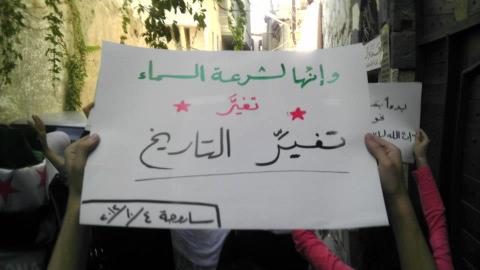 وإنّها لشرعة السماء
تغيَّر
تغيَّر التاريخ
ساروجة ٢٠١٢/١٠/٤